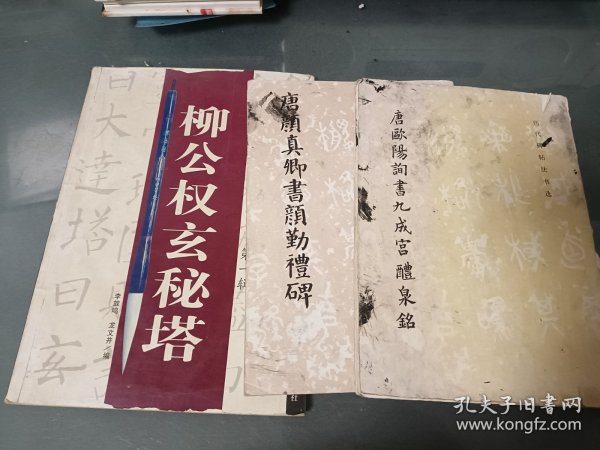 柳公权玄秘塔
第一辑
李放鸣 龙文井 编
大達塔
曰玄
唐顔真卿書顔勤禮碑
历代碑帖法书选
唐歐陽詢書九成宮醴泉銘
孔夫子旧书网
www.kongfz.com